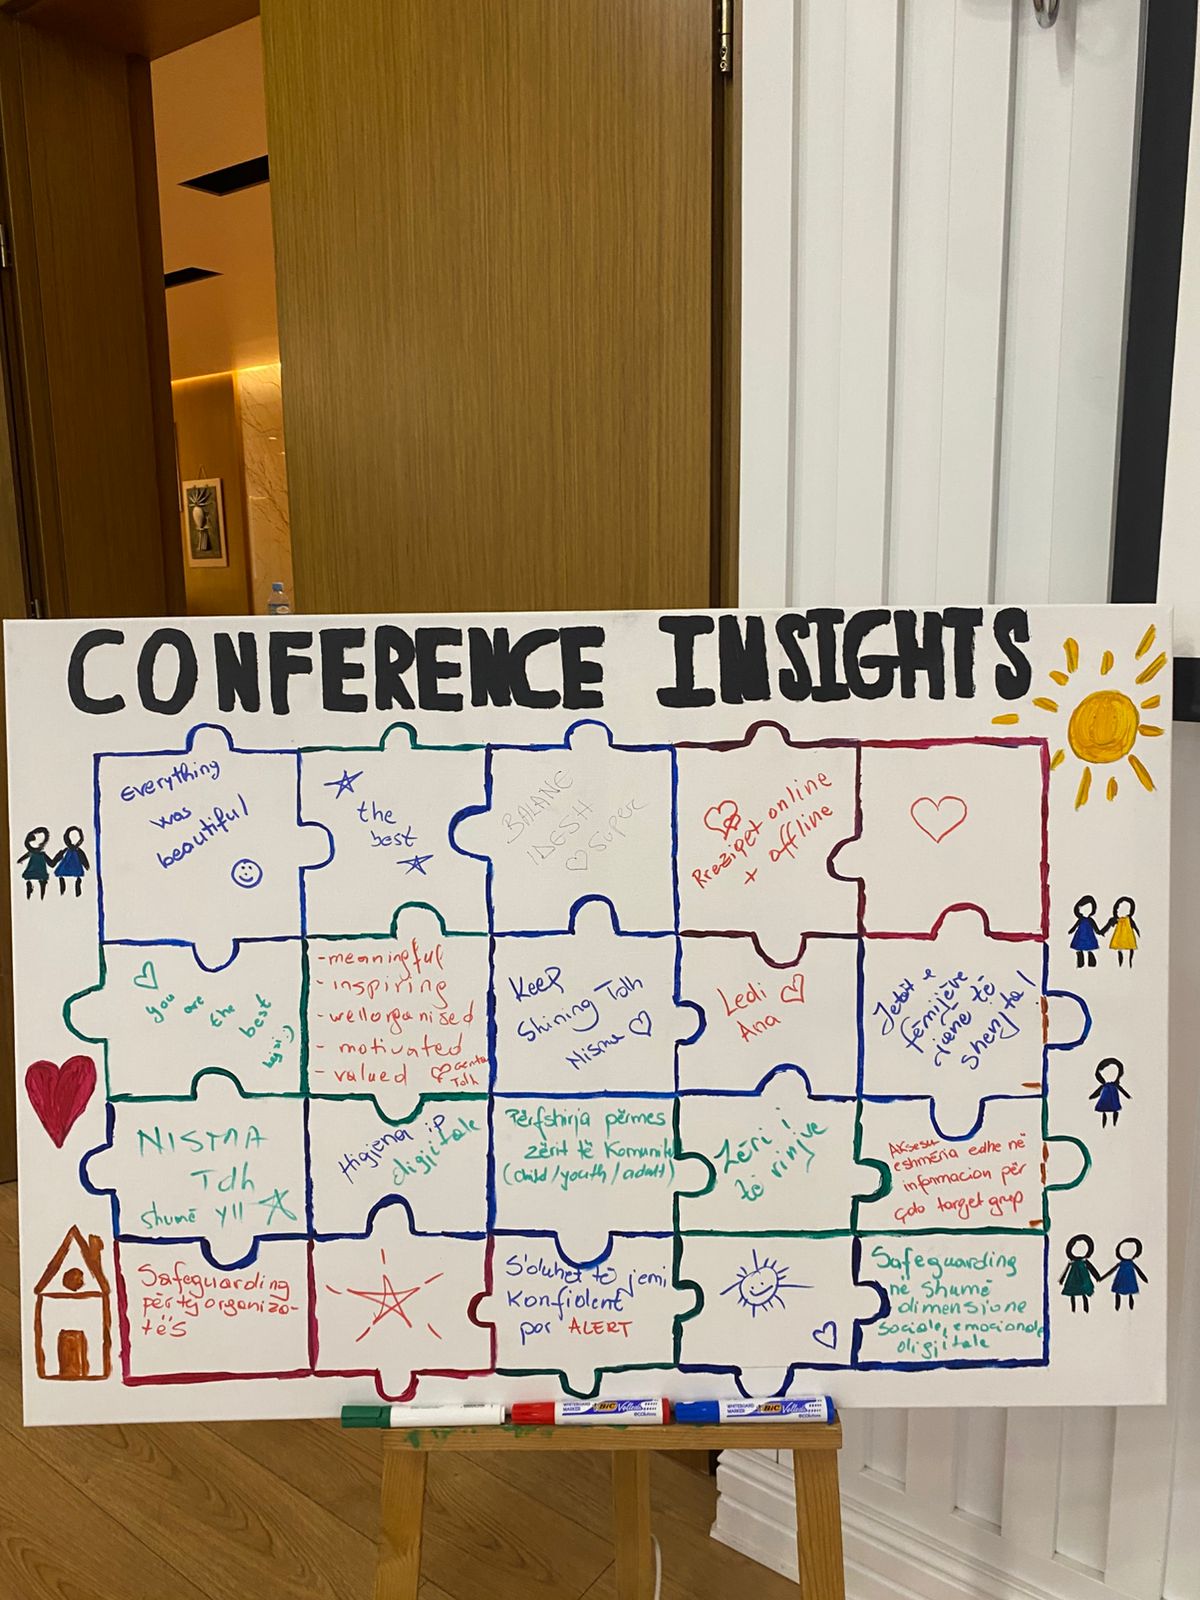 CONFERENCE INSIGHTS
Everything
was
beautiful
the
best
BALANE
IDESH
SUPER
Rrezipet online
+ offline
you
are
the
best
-meaningful
-inspiring
-wellorganised
- motivated
- valued
Tdh
Keep
Shining Tdh
Nisma
Ledi
Ana
Jetët e
fëmijëve
jenë të
shenjta!
NISMA
Tdh
shumë yll
Higjena ip
digjitale
Përfshirja përmes
zërit të Komunite
(child/youth/adult)
Zëri i
të rinjve
Aksesu
eshmëria edhe në
informacion për
çdo target grup
Safeguarding
përtej organiza-
tës
S'duhet të jemi
Konfident
por ALERT
Safeguarding
në shumë
dimensione
sociale, emocionale
digjitale
WHITEBOARD
MARKER
BIC Velleda
WHITEBOARD
MARKER
BIC Velleda